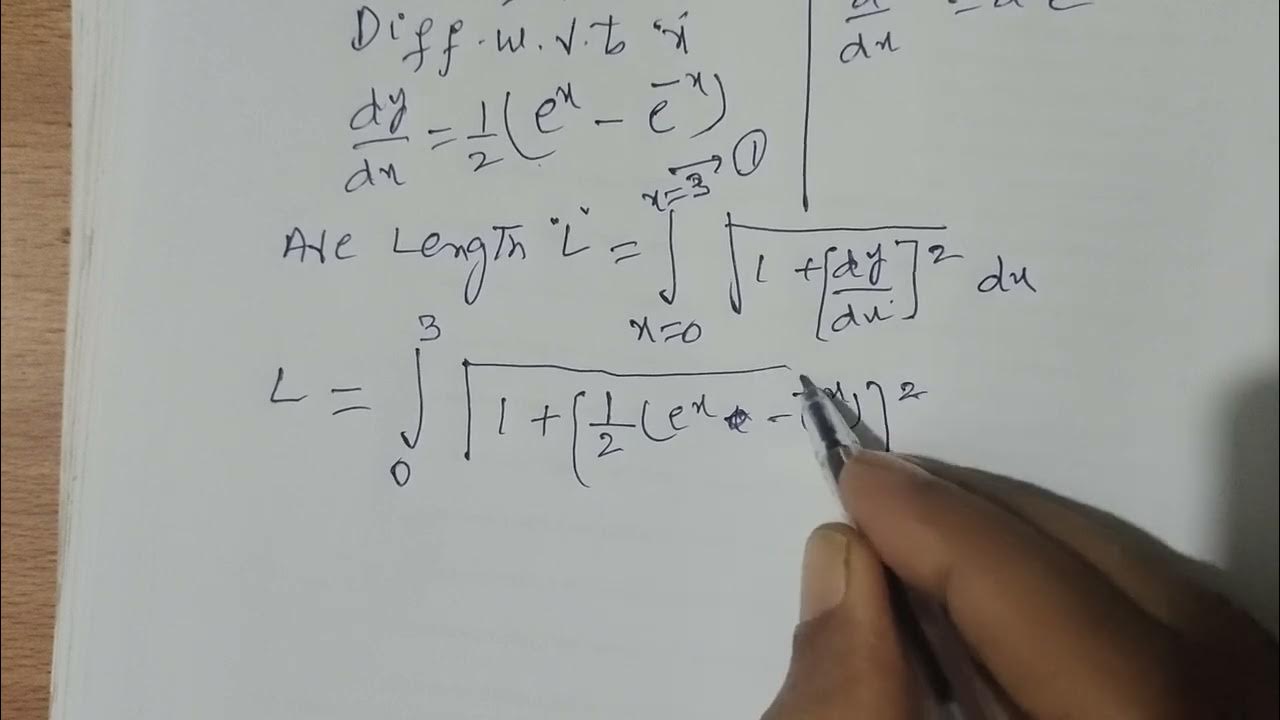 Diff. w.r.t 'x'
dy/dx = 1/2 (e^x - e^-x) → ①
Arc Length "L" = ∫_{x=0}^{x=3} √(1 + [dy/dx]^2) dx
L = ∫_0^3 √(1 + [1/2 (e^x - e^-x)]^2
d/dx